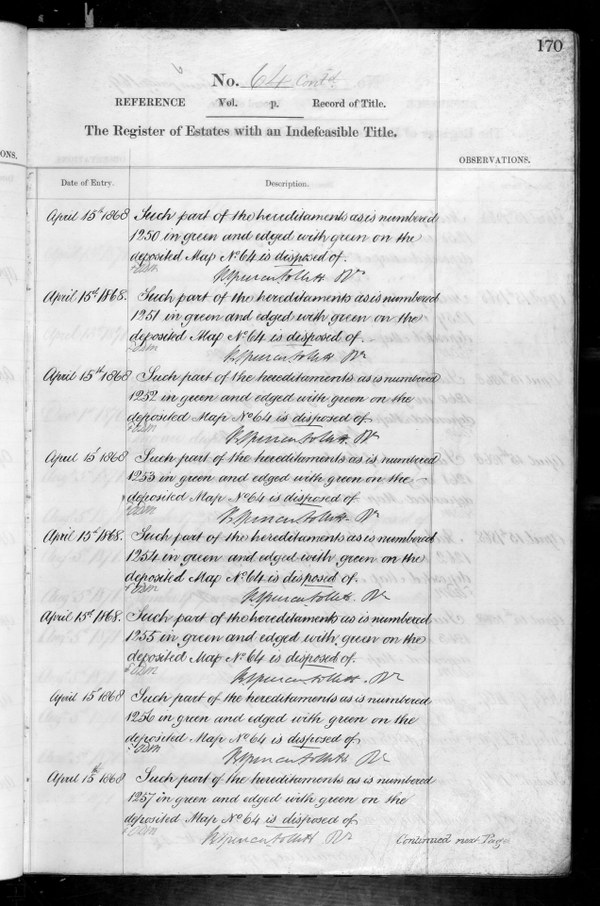 170
No. 64 Contd
REFERENCE Vol. p. Record of Title.
The Register of Estates with an Indefeasible Title.
ONS.
OBSERVATIONS.
Date of Entry. Description.
April 15th 1868 Such part of the hereditaments as is numbered
1250 in green and edged with green on the
deposited Map No 64 is disposed of.
April 15th 1868. Such part of the hereditaments as is numbered
1251 in green and edged with green on the
deposited Map No 64 is disposed of.
April 15th 1868 Such part of the hereditaments as is numbered
1252 in green and edged with green on the
deposited Map No 64 is disposed of.
April 15th 1868 Such part of the hereditaments as is numbered
1253 in green and edged with green on the
deposited Map No 64 is disposed of
April 15th 1868. Such part of the hereditaments as is numbered
1254 in green and edged with green on the
deposited Map No 64 is disposed of.
April 15th 1868. Such part of the hereditaments as is numbered
1255 in green and edged with green on the
deposited Map No 64 is disposed of.
April 15th 1868 Such part of the hereditaments as is numbered
1256 in green and edged with green on the
deposited Map No 64 is disposed of
April 15th 1868 Such part of the hereditaments as is numbered
1257 in green and edged with green on the
deposited Map No 64 is disposed of
Continued next Page